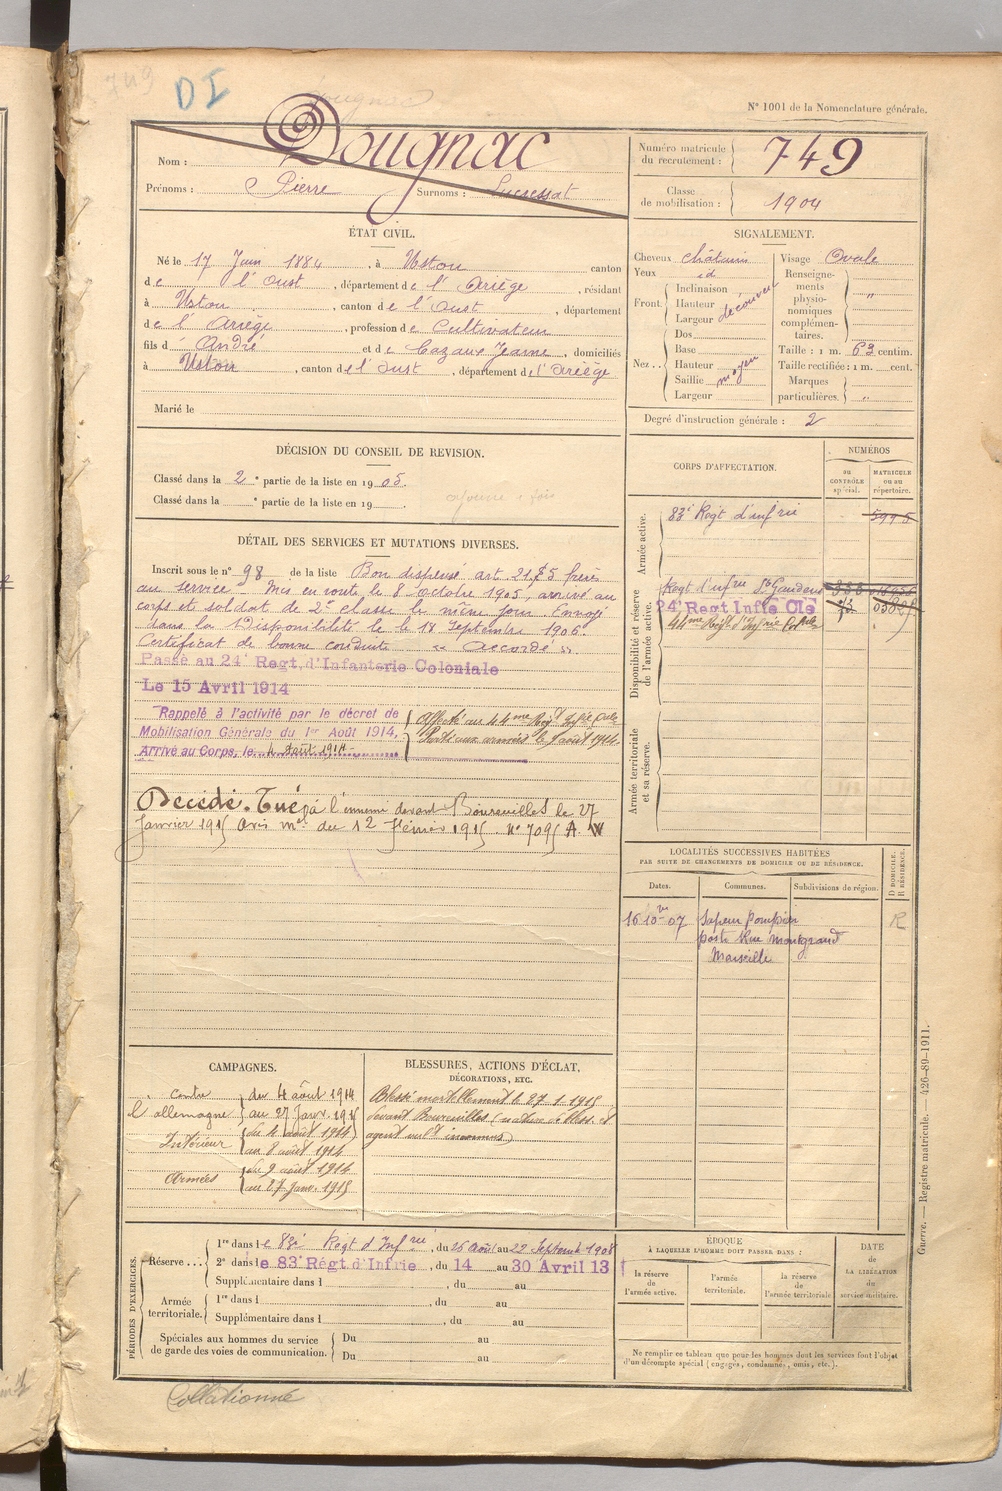 749
DI
Dougnac
N° 1001 de la Nomenclature générale.
Nom : Dougnac
Prénoms : Pierre Surnoms :
Numéro matricule du recrutement : 749
Classe de mobilisation : 1904
ÉTAT CIVIL.
Né le 17 Juin 1884, à Ustou canton
de l'Oust, département de l'Ariège, résidant
à Ustou, canton de l'Oust, département
de l'Ariège, profession de Cultivateur
fils d'André et de Cazaux Jeanne, domiciliés
à Ustou, canton de l'Oust, département de l'Ariège
Marié le
SIGNALEMENT.
Cheveux châtains
Yeux id
Front. Inclinaison
Hauteur
Largeur découvert
Nez.. Dos
Base
Hauteur
Saillie moyen
Largeur
Visage Ovale
Renseignements physionomiques complémentaires. "
Taille : 1 m. 63 centim.
Taille rectifiée : 1 m. cent.
Marques particulières. "
Degré d'instruction générale : 2
DÉCISION DU CONSEIL DE REVISION.
Classé dans la 2e partie de la liste en 1905.
Classé dans la e partie de la liste en 19
DÉTAIL DES SERVICES ET MUTATIONS DIVERSES.
Inscrit sous le n° 98 de la liste Bon dispensé art. 21, frère
au service - Mis en route le 8 Octobre 1905, arrivé au
corps et soldat de 2e classe le même jour. Envoyé
dans la Disponibilité le 18 Septembre 1906.
Certificat de bonne conduite "Accordé"
Passé au 24e Regt. d'Infanterie Coloniale
Le 15 Avril 1914
Rappelé à l'activité par le décret de
Mobilisation Générale du 1er Août 1914,
Arrivé au Corps, le 4 Août 1914
Affecté au 44me Régt Infie Cole
Parti aux armées le 9 août 1914.
Décédé. Tué à l'ennemi devant Boureuilles le 27
Janvier 1915 Avis mel du 12 février 1915. N° 7095 A.
CORPS D'AFFECTATION.
NUMÉROS
au CONTRÔLE spécial.
MATRICULE ou au répertoire.
Armée active.
83e Regt d'infrie
5995
Disponibilité et réserve de l'armée active.
Regt d'infrie St Gaudens
24e Regt Infie Cle
44me Régt d'Infrie Cole
Armée territoriale et sa réserve.
LOCALITÉS SUCCESSIVES HABITÉES
PAR SUITE DE CHANGEMENTS DE DOMICILE OU DE RÉSIDENCE.
Dates. Communes. Subdivisions de région. D DOMICILE. R RÉSIDENCE.
16 10bre 07 Sapeur pompier R
poste Rue Montgrand
Marseille
CAMPAGNES.
Contre l'allemagne du 4 août 1914
au 27 Janv. 1915
Intérieur du 4 août 1914
au 8 août 1914
Armées du 9 août 1914
au 27 Janv. 1915
BLESSURES, ACTIONS D'ÉCLAT, DÉCORATIONS, ETC.
Blessé mortellement le 27.1.1915
devant Boureuilles (nature de bless. et
agent vulnt inconnus)
PÉRIODES D'EXERCICES.
Réserve... 1re dans le 83e Regt d'Infrie, du 26 Août au 22 Septemb 1908
2e dans le 83e Régt. d'Infrie, du 14 au 30 Avril 13
Supplémentaire dans l, du au
Armée territoriale. 1re dans l, du au
Supplémentaire dans l, du au
Spéciales aux hommes du service de garde des voies de communication. Du au
Du au
ÉPOQUE
À LAQUELLE L'HOMME DOIT PASSER DANS :
la réserve de l'armée active.
l'armée territoriale.
la réserve de l'armée territoriale
DATE DE LA LIBÉRATION du service militaire.
Ne remplir ce tableau que pour les hommes dont les services font l'objet
d'un décompte spécial (engagés, condamnés, omis, etc.).
Guerre. — Registre matricule. — 426-89-1911.
Collationné